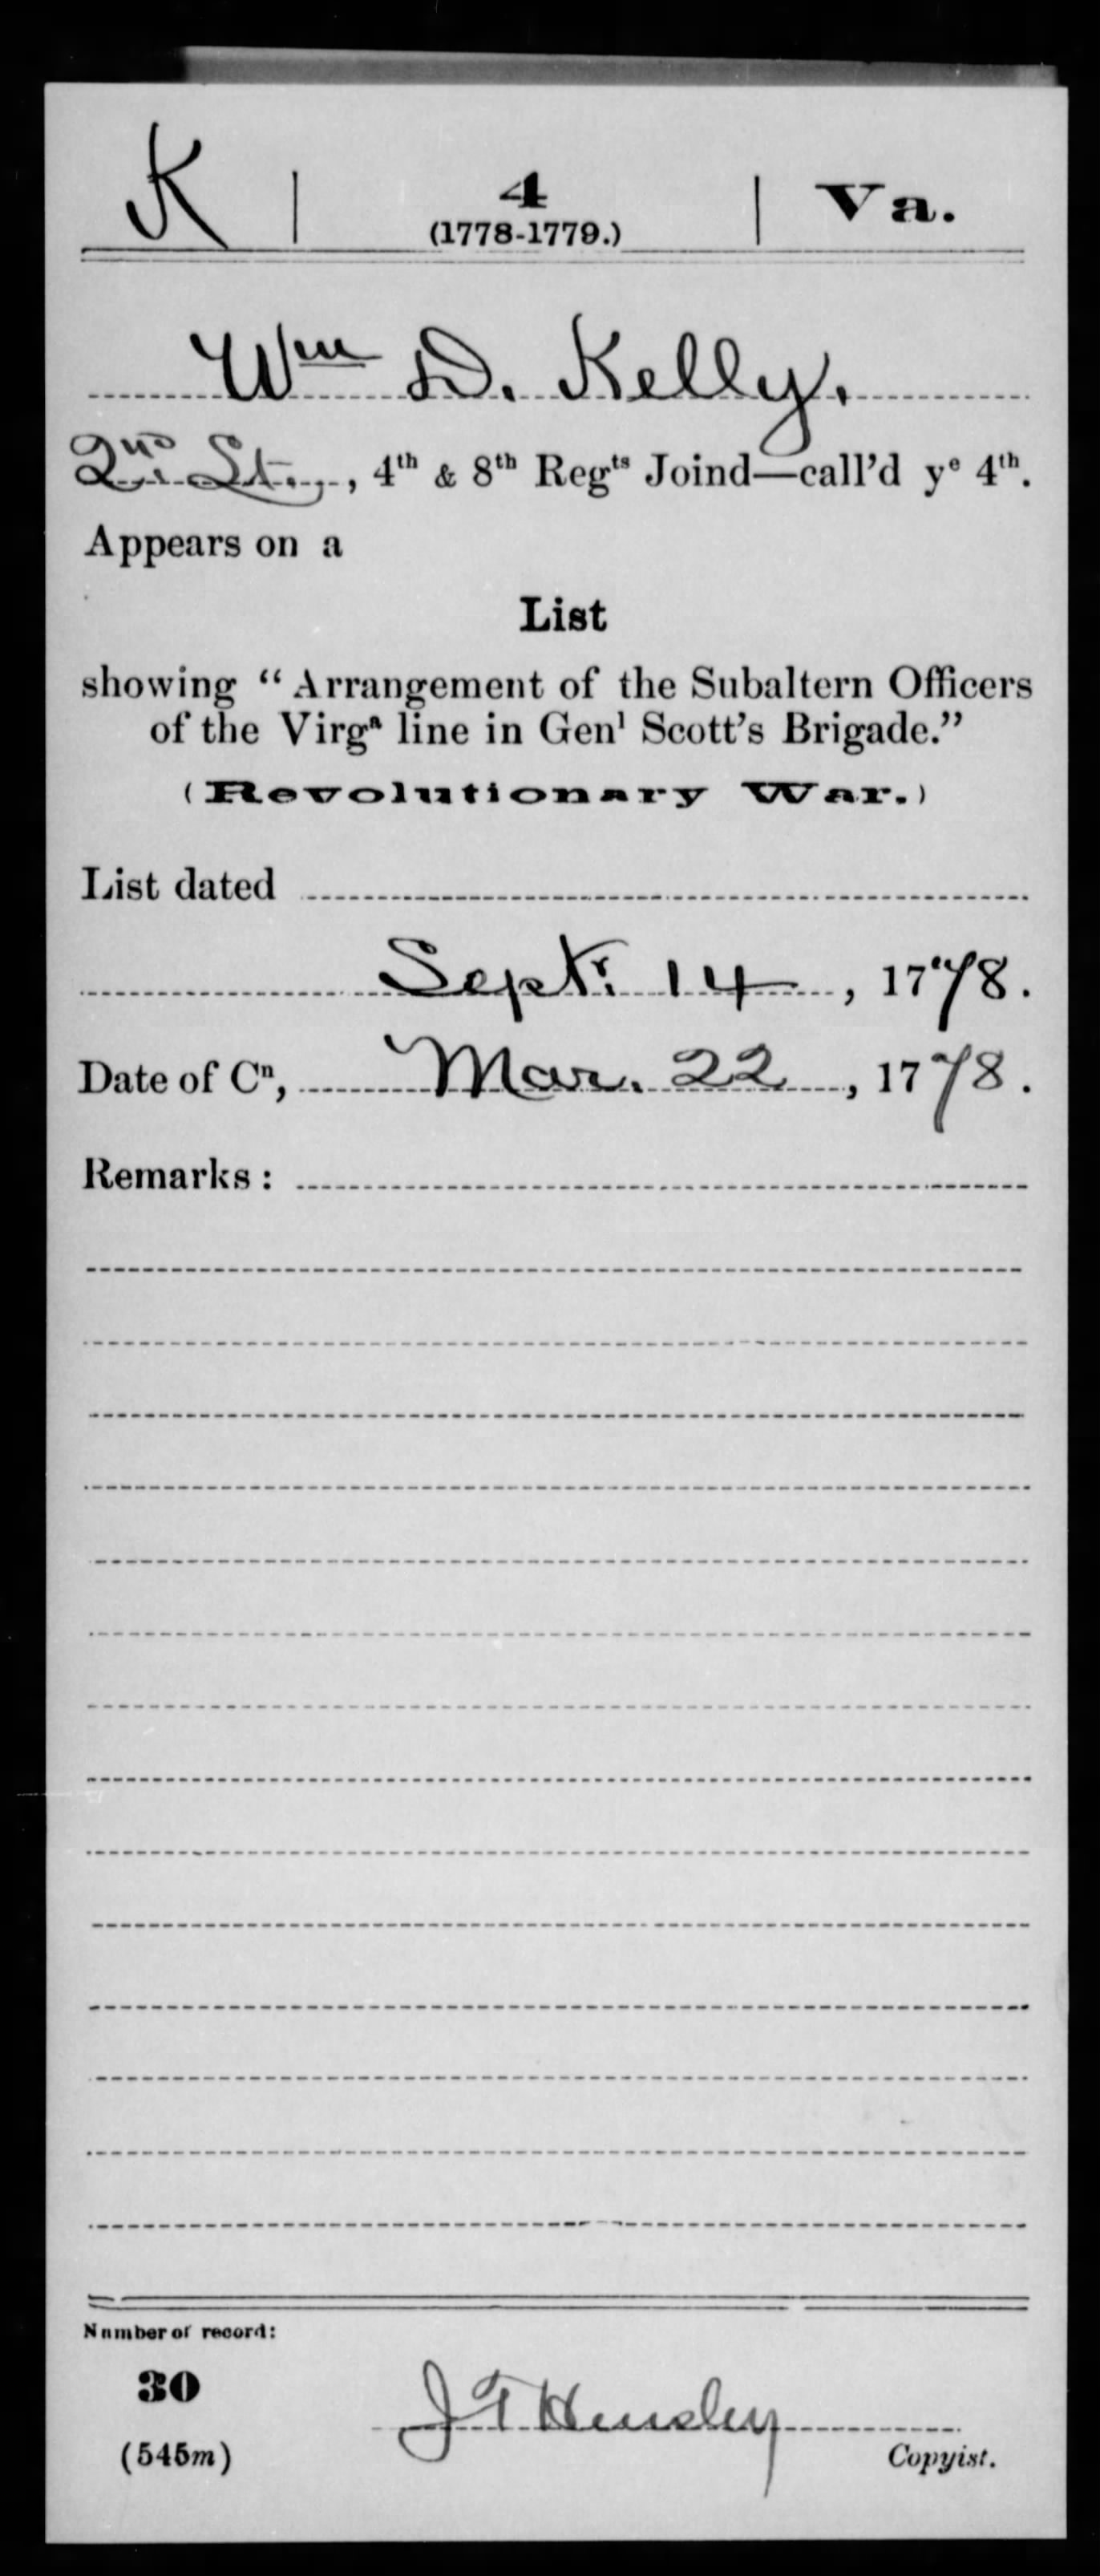 K | 4 | Va.
(1778-1779.)
Wm D. Kelly.
2nd Lt., 4th & 8th Regts Joind—call'd ye 4th.
Appears on a
List
showing "Arrangement of the Subaltern Officers
of the Virga line in Genl Scott's Brigade."
(Revolutionary War.)
List dated
Septr 14, 1778.
Date of Cn, Mar. 22, 1778.
Remarks:
Number of record:
30
J T Hensley
(545m) Copyist.